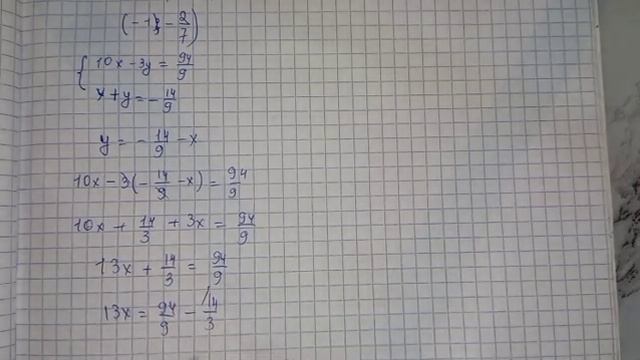 (-1; -2/7)
{ 10x - 3y = 94/9
x + y = -14/9
y = -14/9 - x
10x - 3(-14/9 - x) = 94/9
10x + 14/3 + 3x = 94/9
13x + 14/3 = 94/9
13x = 94/9 - 14/3